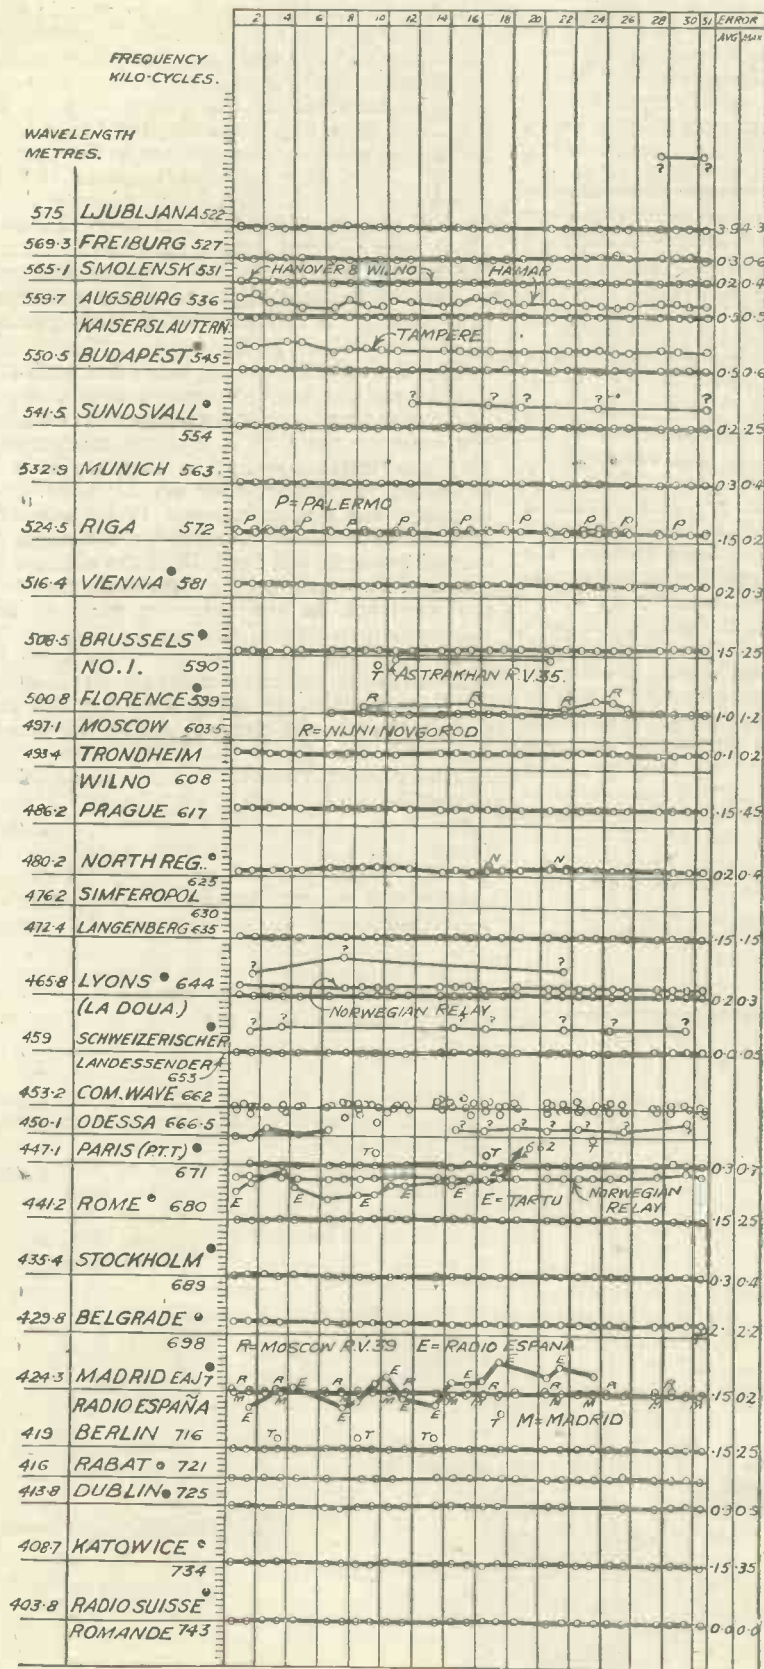 2 4 6 8 10 12 14 16 18 20 22 24 26 28 30 31 ERROR
AVG MAX
FREQUENCY
KILO-CYCLES.
WAVELENGTH
METRES.
? ?
575 LJUBLJANA 522 3.9 4.3
569.3 FREIBURG 527 0.3 0.6
565.1 SMOLENSK 531 HANOVER & WILNO HAMAR 0.2 0.4
559.7 AUGSBURG 536
KAISERSLAUTERN TAMPERE 0.3 0.5
550.5 BUDAPEST 545 0.5 0.6
? ? ? ? ?
541.5 SUNDSVALL
554 0.2 .25
532.9 MUNICH 563 0.3 0.4
P=PALERMO
P P P P P P P P P
524.5 RIGA 572 .15 0.2
516.4 VIENNA 581 0.2 0.3
508.5 BRUSSELS .15 .25
NO.1. 590 T ASTRAKHAN R.V.35.
R R R R
500.8 FLORENCE 599 1.0 1.2
497.1 MOSCOW 603.5 R=NIJNI NOVGOROD
493.4 TRONDHEIM 0.1 0.2
WILNO 608
486.2 PRAGUE 617 .15 .45
N N
480.2 NORTH REG. 0.2 0.4
625
476.2 SIMFEROPOL
630
472.4 LANGENBERG 635 .15 .15
? ? ?
465.8 LYONS 644 0.2 0.3
(LA DOUA.) NORWEGIAN RELAY
? ? ? ? ? ? ?
459 SCHWEIZERISCHER 0.0 .05
LANDESSENDER
653
453.2 COM.WAVE 662
450.1 ODESSA 666.5 ? ? ? ? ? ?
447.1 PARIS (P.T.T.) T T 662 T 0.3 0.7
671
E E E E E E E=TARTU NORWEGIAN
RELAY
441.2 ROME 680 .15 .25
435.4 STOCKHOLM
689 0.3 0.4
429.8 BELGRADE 2. 2.2
698 R=MOSCOW R.V.39 E=RADIO ESPANA
424.3 MADRID EAJ7 .15 0.2
RADIO ESPAÑA T M=MADRID
419 BERLIN 716 T T T .15 .25
416 RABAT 721
413.8 DUBLIN 725 0.3 0.5
408.7 KATOWICE
734 .15 .35
403.8 RADIO SUISSE
ROMANDE 743 0.0 0.0